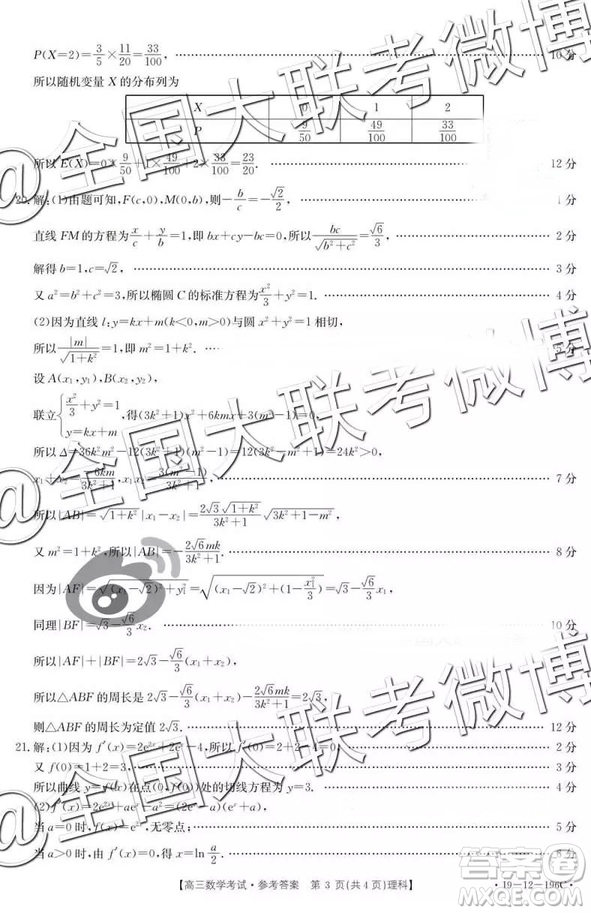 P(X=2)=3/5×11/20=33/100. 10分
所以随机变量 X 的分布列为
X 0 1 2
P 9/50 49/100 33/100
所以 E(X)=0×9/50+1×49/100+2×33/100=23/20. 12分
20.解:(1)由题可知,F(c,0),M(0,b),则-b/c=-√2/2, 1分
直线 FM 的方程为x/c+y/b=1,即 bx+cy-bc=0,所以bc/√(b²+c²)=√6/3, 2分
解得 b=1,c=√2, 3分
又 a²=b²+c²=3,所以椭圆 C 的标准方程为x²/3+y²=1. 4分
(2)因为直线 l:y=kx+m(k<0,m>0)与圆 x²+y²=1 相切,
所以|m|/√(1+k²)=1,即 m²=1+k². 5分
设 A(x₁,y₁),B(x₂,y₂),
联立{x²/3+y²=1, y=kx+m ,得(3k²+1)x²+6kmx+3(m²-1)=0,
所以 Δ=36k²m²-12(3k²+1)(m²-1)=12(3k²-m²+1)=24k²>0,
x₁+x₂=-6km/(3k²+1),x₁x₂=3(m²-1)/(3k²+1), 7分
所以|AB|=√(1+k²)|x₁-x₂|=2√3√(1+k²)/(3k²+1)√(3k²+1-m²),
又 m²=1+k²,所以|AB|=-2√6mk/(3k²+1). 8分
因为|AF|=√((x₁-√2)²+y₁²)=√((x₁-√2)²+(1-x₁²/3))=√3-√6/3x₁,
同理|BF|=√3-√6/3x₂. 10分
所以|AF|+|BF|=2√3-√6/3(x₁+x₂),
所以△ABF 的周长是 2√3-√6/3(x₁+x₂)-2√6mk/(3k²+1)=2√3,
则△ABF 的周长为定值 2√3. 12分
21.解:(1)因为 f′(x)=2e²ˣ+2eˣ-4,所以 f′(0)=2+2-4=0. 2分
又 f(0)=1+2=3, 3分
所以曲线 y=f(x)在点(0,f(0))处的切线方程为 y=3. 4分
(2)f′(x)=2e²ˣ+aeˣ-a²=(2eˣ-a)(eˣ+a),
当 a=0时,f(x)=e²ˣ,无零点; 5分
当 a>0时,由 f′(x) 6分
【高三数学考试·参考答案 第 3 页(共 4 页)理科】
·19-12-196C·
@全国大联考微博
@全国大联考微博
答案圈